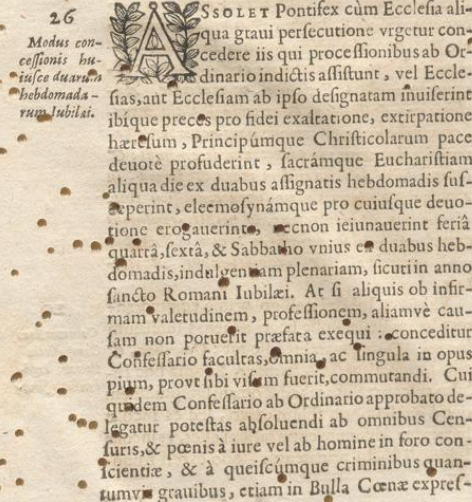 26
Modus con-
cessionis hu-
iusce duarum
hebdomada-
rum Iubilæi.
ASSOLET Pontifex cùm Ecclesia ali-
qua graui persecutione vrgetur con-
cedere iis qui processionibus ab Or-
dinario indictis assistunt, vel Eccle-
sias, aut Ecclesiam ab ipso designatam inuiserint
ibíque preces pro fidei exaltatione, extirpatione
hæresum, Principúmque Christicolarum pace
deuotè profuderint, sacrámque Eucharistiam
aliqua die ex duabus assignatis hebdomadis sus-
ceperint, eleemosynámque pro cuiusque deuo-
tione erogauerint, necnon ieiunauerint feriâ
quartâ, sextâ, & Sabbatho vnius ex duabus heb-
domadis, indulgentiam plenariam, sicuti in anno
sancto Romani Iubilæi. At si aliquis ob infir-
mam valetudinem, professionem, aliamvè cau-
sam non potuerit præfata exequi: conceditur
Confessario facultas, omnia, ac singula in opus
pium, provt sibi visum fuerit, commutandi. Cui
quidem Confessario ab Ordinario approbato de-
legatur potestas absoluendi ab omnibus Cen-
suris, & pœnis à iure vel ab homine in foro con-
scientiæ, & à queiscúmque criminibus quan-
tumvis grauibus, etiam in Bulla Cœnæ expres-